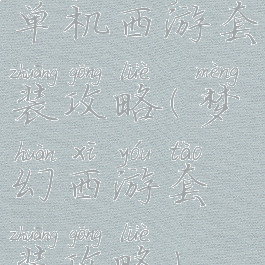 单机西游套
zhuāng gōng lüè mèng
装攻略(梦
huàn xī yóu tào
幻西游套
zhuāng gōng lüè
装攻略)